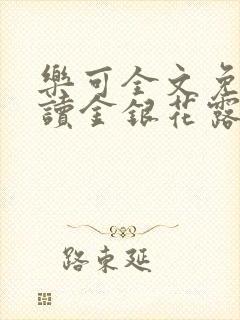 樂可全文免
讀金銀花露
路東延